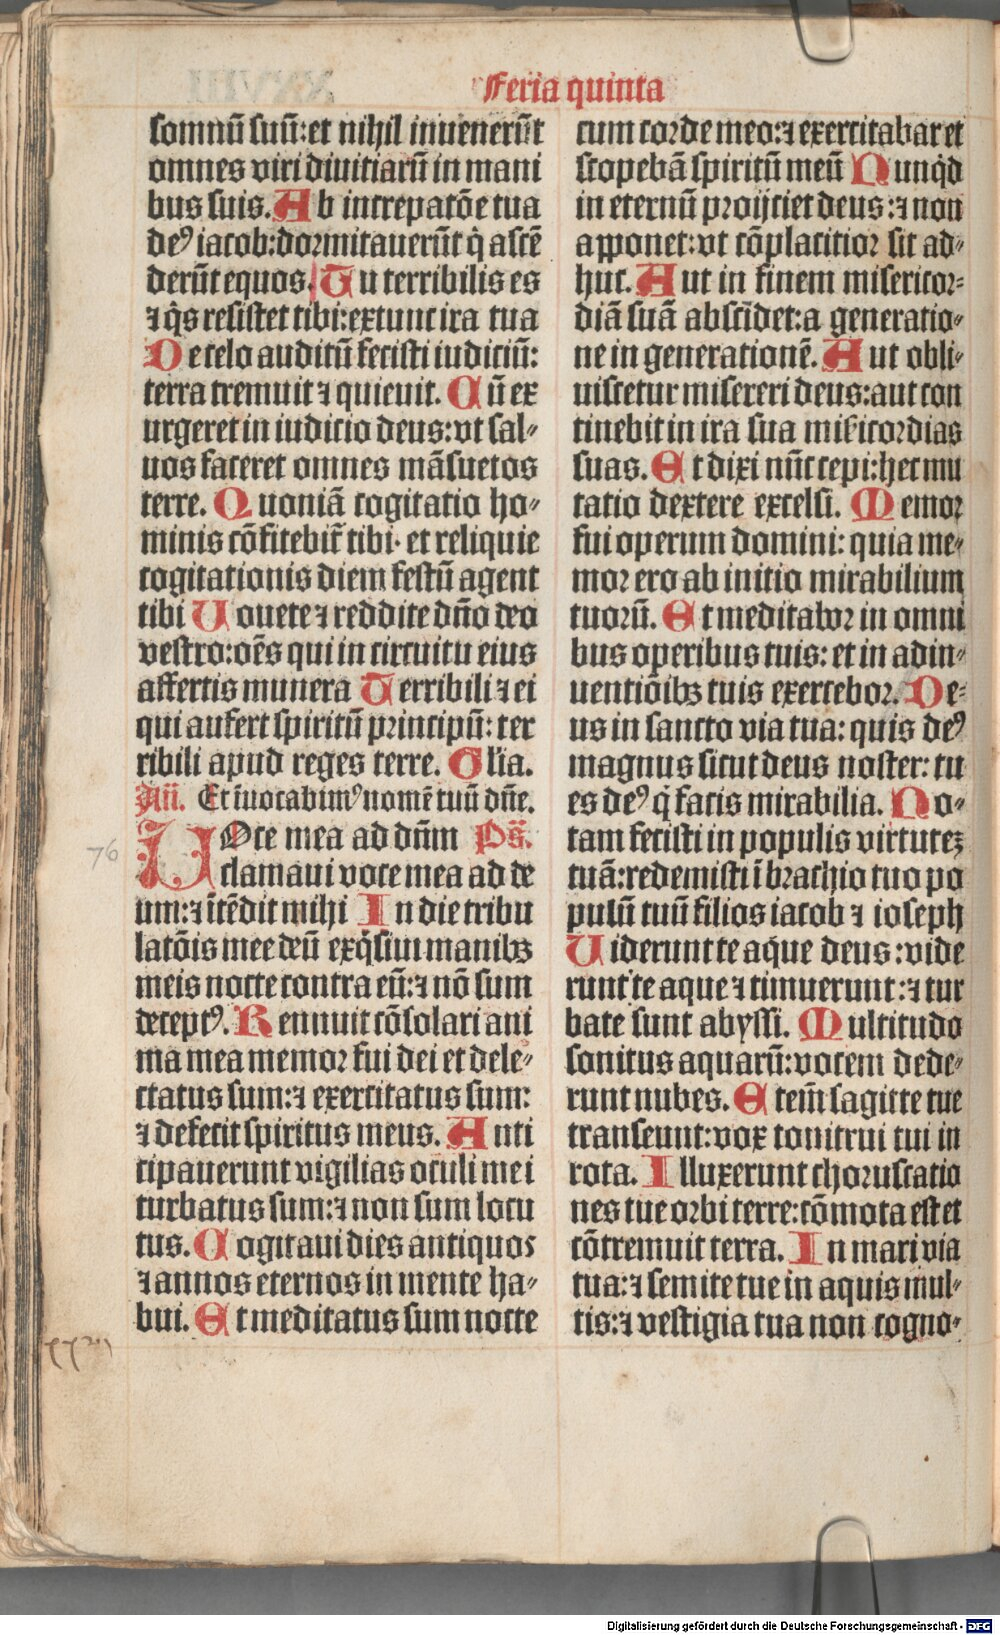 Feria quinta
somnū suū: et nihil inuenerūt
omnes viri diuitiarū in mani
bus suis. Ab increpatōe tua
deꝰ iacob: dormitauerūt q̇ ascē
derūt equos. Tu terribilis es
⁊ q̇s resistet tibi: extunc ira tua
De celo auditū fecisti iudiciū:
terra tremuit ⁊ quieuit. Cū ex
urgeret in iudicio deus: vt sal⸗
uos faceret omnes māsuetos
terre. Quoniā cogitatio ho⸗
minis cōfitebit̄ tibi· et reliquie
cogitationis diem festū agent
tibi Uouete ⁊ reddite dn̄o deo
vestro: oēs qui in circuitu eius
affertis munera Terribili ⁊ ei
qui aufert spiritū principū: ter
ribili apud reges terre. Gl'ia.
Añ. Et īuocabimꝰ nomē tuū dn̄e.
76
UOce mea ad dn̄m Ps̄.
clamaui voce mea ad de
um: ⁊ ītēdit mihi In die tribu
latōis mee deū exq̇siui manibꝫ
meis nocte contra eū: ⁊ nō sum
deceptꝰ. Rennuit cōsolari ani
ma mea memor fui dei et dele⸗
ctatus sum: ⁊ exercitatus sum:
⁊ defecit spiritus meus. Anti
cipauerunt vigilias oculi mei
turbatus sum: ⁊ non sum locu
tus. Cogitaui dies antiquos
⁊ annos eternos in mente ha⸗
bui. Et meditatus sum nocte
cum corde meo: ⁊ exercitabar et
scopebā spiritū meū Nunq̇d
in eternū proijciet deus: ⁊ non
apponet: vt cōplacitior sit ad⸗
huc. Aut in finem misericor⸗
diā suā abscīdet: a generatio⸗
ne in generationē. Aut obli⸗
uiscetur misereri deus: aut con
tinebit in ira sua mīcordias
suas. Et dixi nūc cepi: hec mu
tatio dextere excelsi. Memor
fui operum domini: quia me⸗
mor ero ab initio mirabilium
tuorū. Et meditabor in omni
bus operibus tuis: et in adin⸗
uentiōibꝫ tuis exercebor. De⸗
us in sancto via tua: quis deꝰ
magnus sicut deus noster: tu
es deꝰ q̇ facis mirabilia. No⸗
tam fecisti in populis virtuteꝫ
tuā: redemisti ī brachio tuo po
pulū tuū filios iacob ⁊ ioseph
Uiderunt te aque deus: vide
runt te aque ⁊ timuerunt: ⁊ tur
bate sunt abyssi. Multitudo
sonitus aquarū: vocem dede⸗
runt nubes. Etem̄ sagitte tue
transeunt: vox tonitrui tui in
rota. Illuxerunt choruscatio
nes tue orbi terre: cōmota est et
cōtremuit terra. In mari via
tua: ⁊ semite tue in aquis mul⸗
tis: ⁊ vestigia tua non cogno⸗
Digitalisierung gefördert durch die Deutsche Forschungsgemeinschaft - DFG